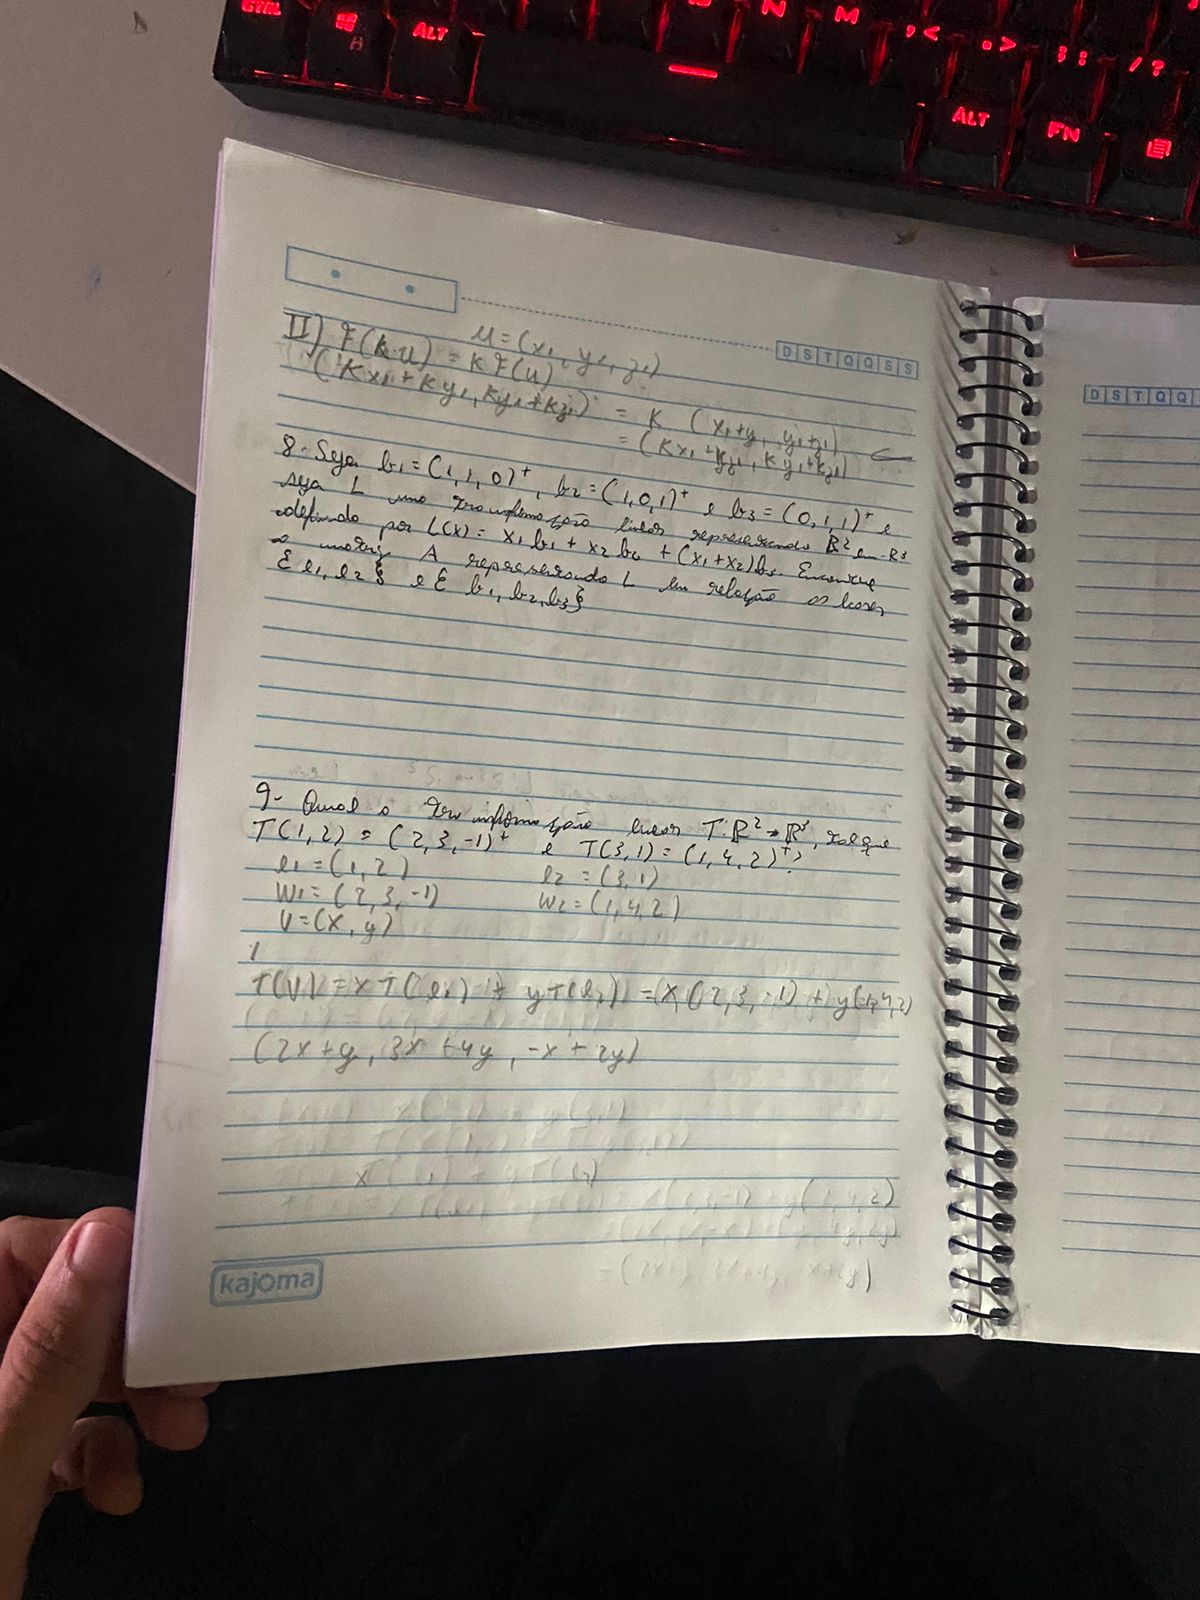 CTRL
ALT
N
M
, <
. >
; :
/ ?
ALT
FN
D S T Q Q S S
D S T Q Q
II) F(k·u) = k F(u)
u = (x₁, y₁, z₁)
(kx₁ + ky₁, ky₁ + kz₁) = k (x₁+y₁, y₁+z₁)
8- Seja b₁ = (1, 1, 0)ᵗ, b₂ = (1, 0, 1)ᵗ e b₃ = (0, 1, 1)ᵗ e
seja L uma transformação linear representando R² em R³
definido por L(x) = x₁b₁ + x₂b₂ + (x₁+x₂)b₃. Encontre
a matriz A representando L em relação as bases
{e₁, e₂} e {b₁, b₂, b₃}
9- Qual a transformação linear T: R² → R³, tal que
T(1, 2) = (2, 3, -1)ᵗ e T(3, 1) = (1, 4, 2)ᵗ?
e₁ = (1, 2) e₂ = (3, 1)
W₁ = (2, 3, -1) W₂ = (1, 4, 2)
V = (x, y)
T(V) = x T(e₁) + y T(e₂) = x(2, 3, -1) + y(1, 4, 2)
(2x + y, 3x + 4y, -x + 2y)
kajoma